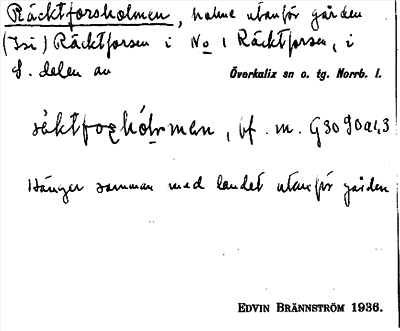 Räcktforsholmen, holme utanför gården
(Isi) Räcktforsen i No 1 Räcktforsen, i
S. delen av Överkalix sn o. tg. Norrb. l.
bf. m. G3090a1,3
Hänger samman med landet utanför gården
EDVIN BRÄNNSTRÖM 1936.